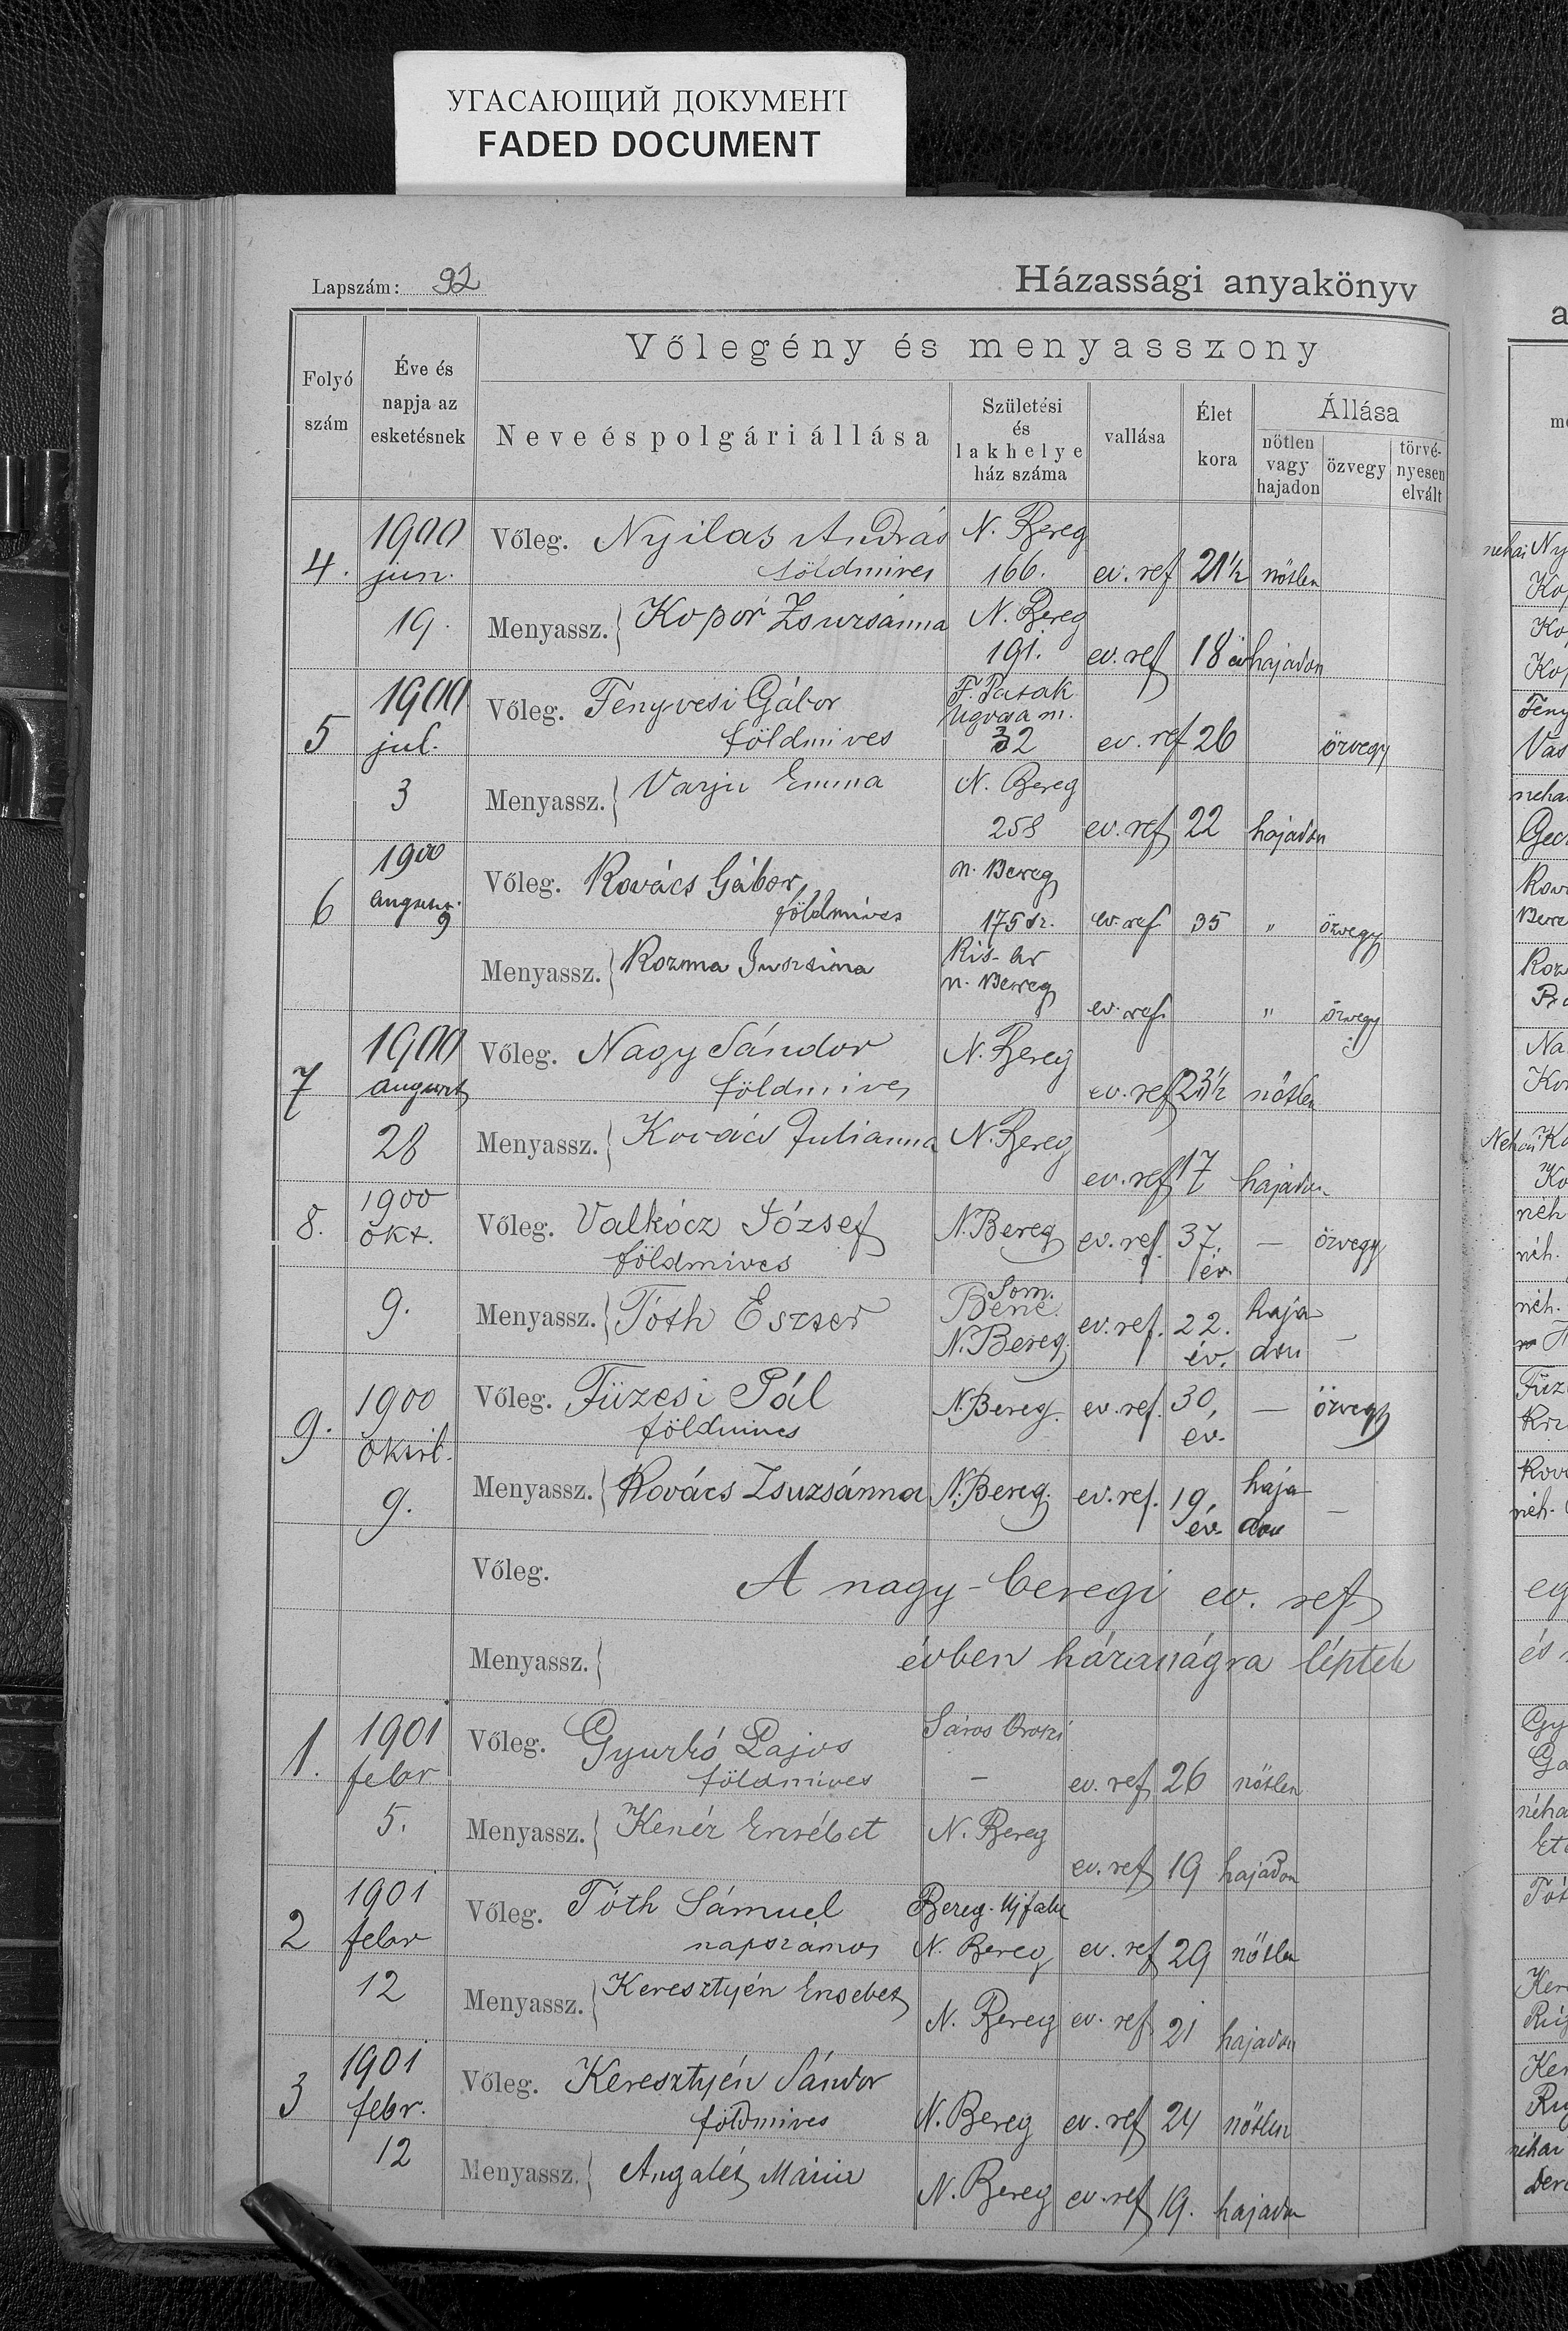 УГАСАЮЩИЙ ДОКУМЕНТ
FADED DOCUMENT
Lapszám: 92
Házassági anyakönyv
Vőlegény és menyasszony
Folyó szám
Éve és napja az esketésnek
Neve és polgári állása
Születési és lakhelye ház száma
vallása
Élet kora
Állása
nőtlen vagy hajadon
özvegy
törvényesen elvált
1900 Vőleg. Nyilas András N. Bereg
4. jun. földmives 166. ev. ref 21½ nőtlen
19. Menyassz. Kopor Zsuzsánna N. Bereg
191. ev. ref 18 év hajadon
1900 Vőleg. Fenyvesi Gábor F. Patak
Ugocsa m.
5 jul. földmives 32 ev. ref 26 özvegy
3 Menyassz. Varju Emma N. Bereg
258 ev. ref 22 hajadon
1900 Vőleg. Kovács Gábor n. Bereg
6 földmives 175 sz. ev. ref 35 " özvegy
9
Menyassz. Kozma n. Bereg
ev. ref. " özvegy
1900 Vőleg. Nagy Sándor N. Bereg
7 august földmives ev. ref 23½ nőtlen
28 Menyassz. Kovács Julianna N. Bereg
ev. ref 17 hajadon
1900
8. okt. Vőleg. Valkócz József N. Bereg ev. ref. 37. — özvegy
földmives év.
9. Menyassz. Tóth Eszter Som.
Bene.
N. Bereg. ev. ref. 22. év. hajadon —
1900 Vőleg. Füzesi Pál N. Bereg. ev. ref. 30, — özvegy
9. földmives év.
9. Menyassz. Kovács Zsuzsánna N. Bereg. ev. ref. 19, év. hajadon —
Vőleg. A nagy-beregi ev. ref
Menyassz. évben házasságra léptek
1901 Vőleg. Gyurkó Lajos Sáros Oroszi
1. febr földmives — ev. ref 26 nőtlen
5. Menyassz. Kenéz Erzsébet N. Bereg
ev. ref 19 hajadon
1901 Vőleg. Tóth Sámuel Bereg-Ujfalu
2 febr napszámos N. Bereg ev. ref 29 nőtlen
12 Menyassz. Keresztyén Ersebet
N. Bereg ev. ref 21 hajadon
1901 Vőleg. Keresztyén Sándor
3 febr. földmives N. Bereg ev. ref 24 nőtlen
12 Menyassz. Mária N. Bereg ev. ref 19. hajadon